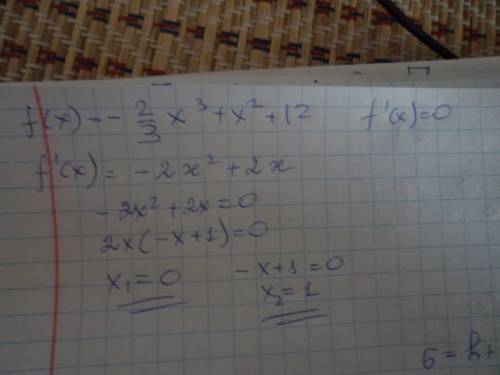 f(x) = - 2/3 x³ + x² + 12   f'(x) = 0
f'(x) = - 2x² + 2x
- 2x² + 2x = 0
2x(-x+1) = 0
x₁ = 0   -x+1 = 0
x₂ = 1